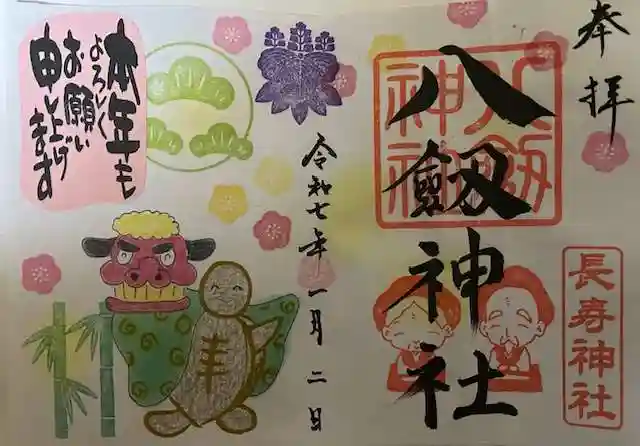 奉拝
八劔神社
八剱
神社
長寿神社
令和七年一月二日
本年も
よろしく
お願い
申し上げ
ます